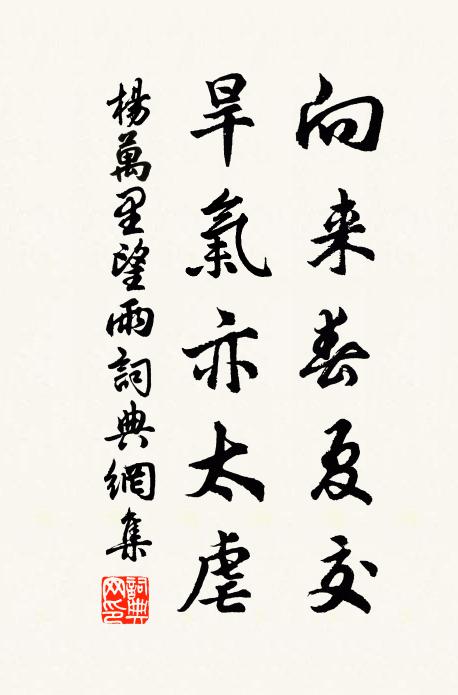 向来春夏交
旱氣亦太虐
楊萬里望雨詞典網集
詞典网印